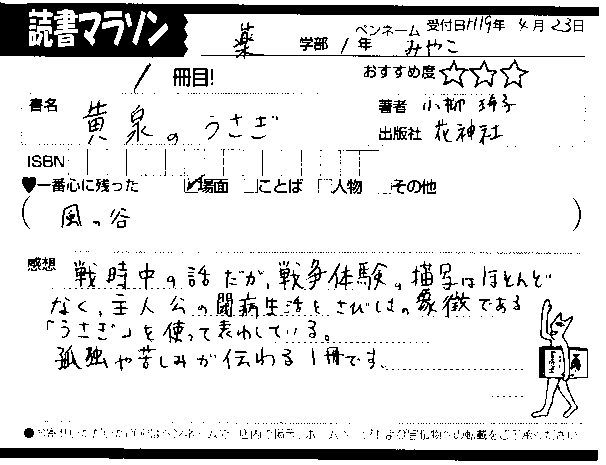 読書マラソン
薬 学部 1年
ペンネーム みやこ
受付日H19年 4月 23日
1 冊目!
おすすめ度☆☆☆
書名 黄泉のうさぎ
著者 小柳 玲子
出版社 花神社
ISBN
♥一番心に残った 場面 ことば 人物 その他
( 風の谷 )
感想 戦時中の話だが、戦争体験の描写はほとんど
なく、主人公の闘病生活とさびしさの象徴である
「うさぎ」を使って表わしている。
孤独や苦しみが伝わる1冊です。